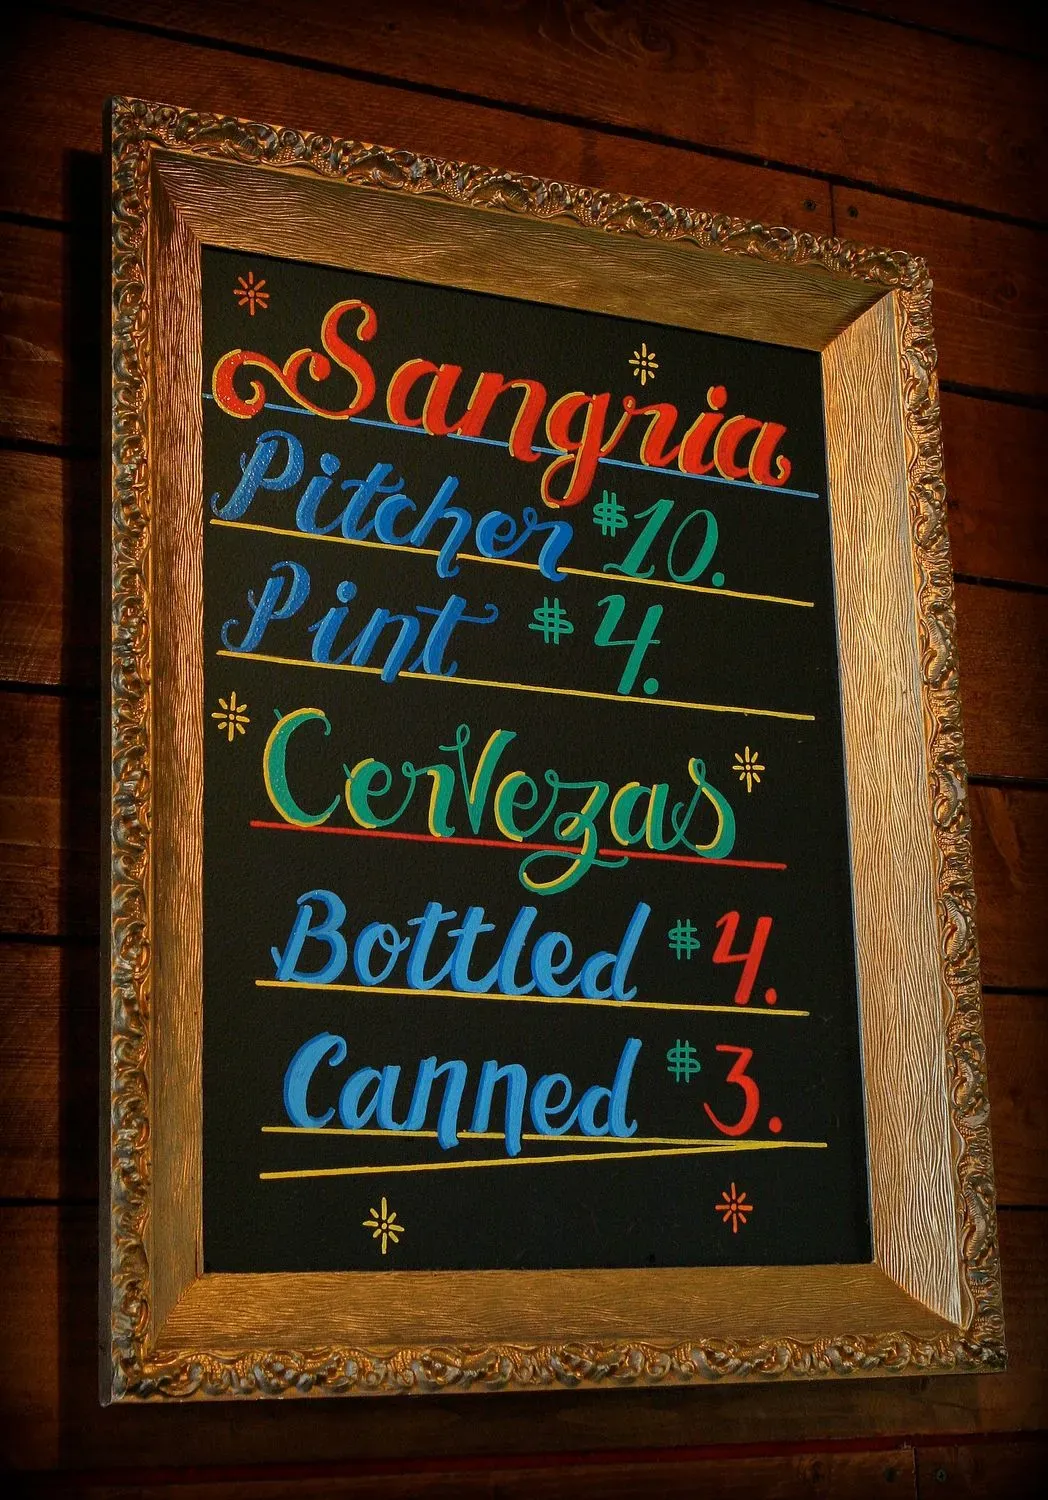 Sangria
Pitcher $10.
Pint $4.
Cervezas
Bottled $4.
Canned $3.